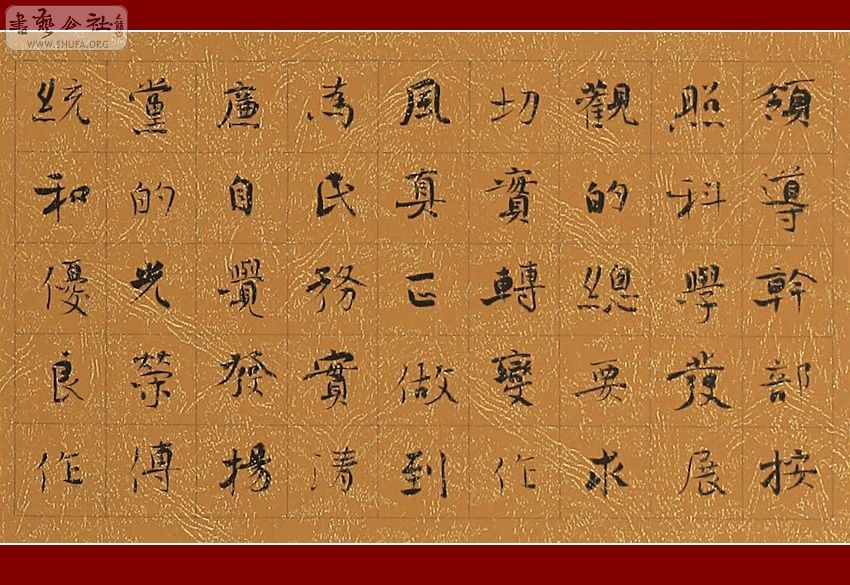 書藝公社
WWW.SHUFA.ORG
領導幹部按
照科學發展
觀的總要求
切實轉變作
風真正做到
為民務實清
廉自覺發揚
黨的光榮傳
統和優良作